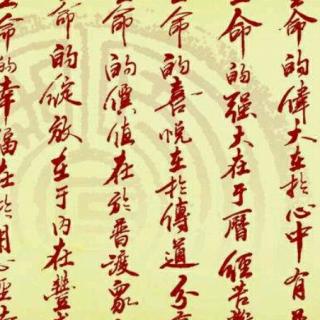 命的偉大在於心中有
命的强大在于曆經苦
命的喜悦在於傳道分
命的價值在於普渡衆
命的绽放在于内在豐
命的幸福在於用心